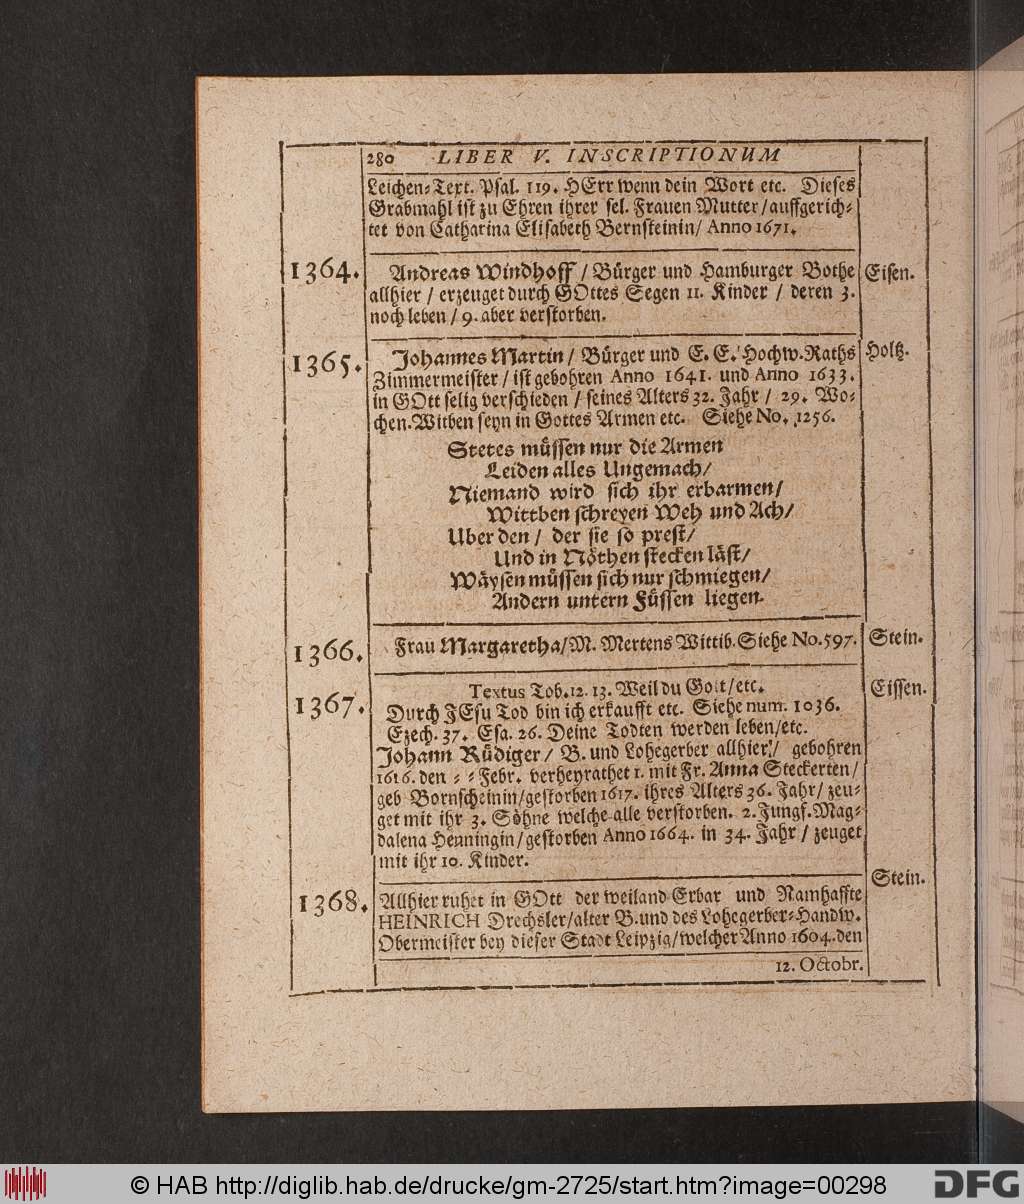 280 LIBER V. INSCRIPTIONUM
Leichen=Text. Psal. 119. HErr wenn dein Wort etc. Dieses
Grabmahl ist zu Ehren ihrer sel. Frauen Mutter/auffgerich=
tet von Catharina Elisabeth Bernsteinin/ Anno 1671.
1364. Andreas Windhoff / Bürger und Hamburger Bothe Eisen.
allhier / erzeuget durch GOttes Segen 11. Kinder / deren 3.
noch leben / 9. aber verstorben.
1365. Johannes Martin / Bürger und E. E. Hochw. Raths Holtz.
Zimmermeister / ist gebohren Anno 1641. und Anno 1633.
in GOtt selig verschieden / seines Alters 32. Jahr / 29. Wo=
chen. Witben seyn in Gottes Armen etc. Siehe No. 1256.
Stetes müssen nur die Armen
Leiden alles Ungemach/
Niemand wird sich ihr erbarmen/
Wittben schreyen Weh und Ach/
Uber den / der sie so prest/
Und in Nöthen stecken läst/
Wäysen müssen sich nur schmiegen/
Andern untern Füssen liegen.
1366. Frau Margaretha/M. Mertens Wittib. Siehe No. 597. Stein.
1367. Textus Tob. 12. 13. Weil du Gott/etc. Eissen.
Durch JEsu Tod bin ich erkaufft etc. Siehe num. 1036.
Ezech. 37. Esa. 26. Deine Todten werden leben/etc.
Johann Rüdiger / B. und Lohegerber allhier/ gebohren
1616. den = = Febr. verheyrathet 1. mit Fr. Anna Steckerten/
geb Bornscheinin/gestorben 1617. ihres Alters 36. Jahr/ zeu=
get mit ihr 3. Söhne welche alle verstorben. 2. Jungf. Mag=
dalena Henningin/gestorben Anno 1664. in 34. Jahr / zeuget
mit ihr 10. Kinder.
1368. Allhier ruhet in GOtt der weiland Erbar und Namhaffte Stein.
HEINRICH Drechsler/alter B. und des Lohegerber=Handw.
Obermeister bey dieser Stadt Leipzig/welcher Anno 1604. den
12. Octobr.
© HAB http://diglib.hab.de/drucke/gm-2725/start.htm?image=00298
DFG